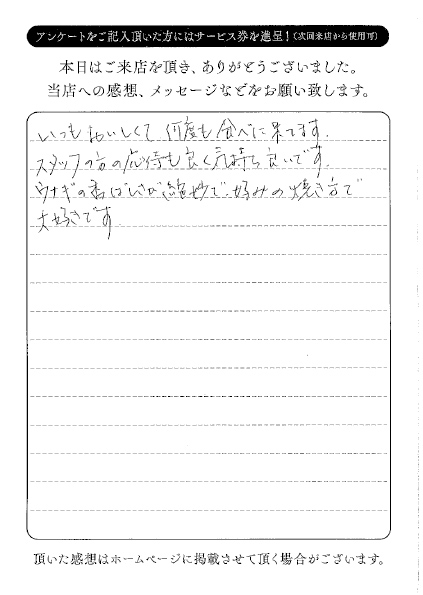 アンケートをご記入頂いた方にはサービス券を進呈!(次回来店から使用可)
本日はご来店を頂き、ありがとうございました。
当店への感想、メッセージなどをお願い致します。
いつもおいしくて何度も食べに来てます.
スタッフの方の応待も良く気持ち良いです.
ウナギの香ばしさが絶妙で.好みの焼き方で
大好きです
頂いた感想はホームページに掲載させて頂く場合がございます。